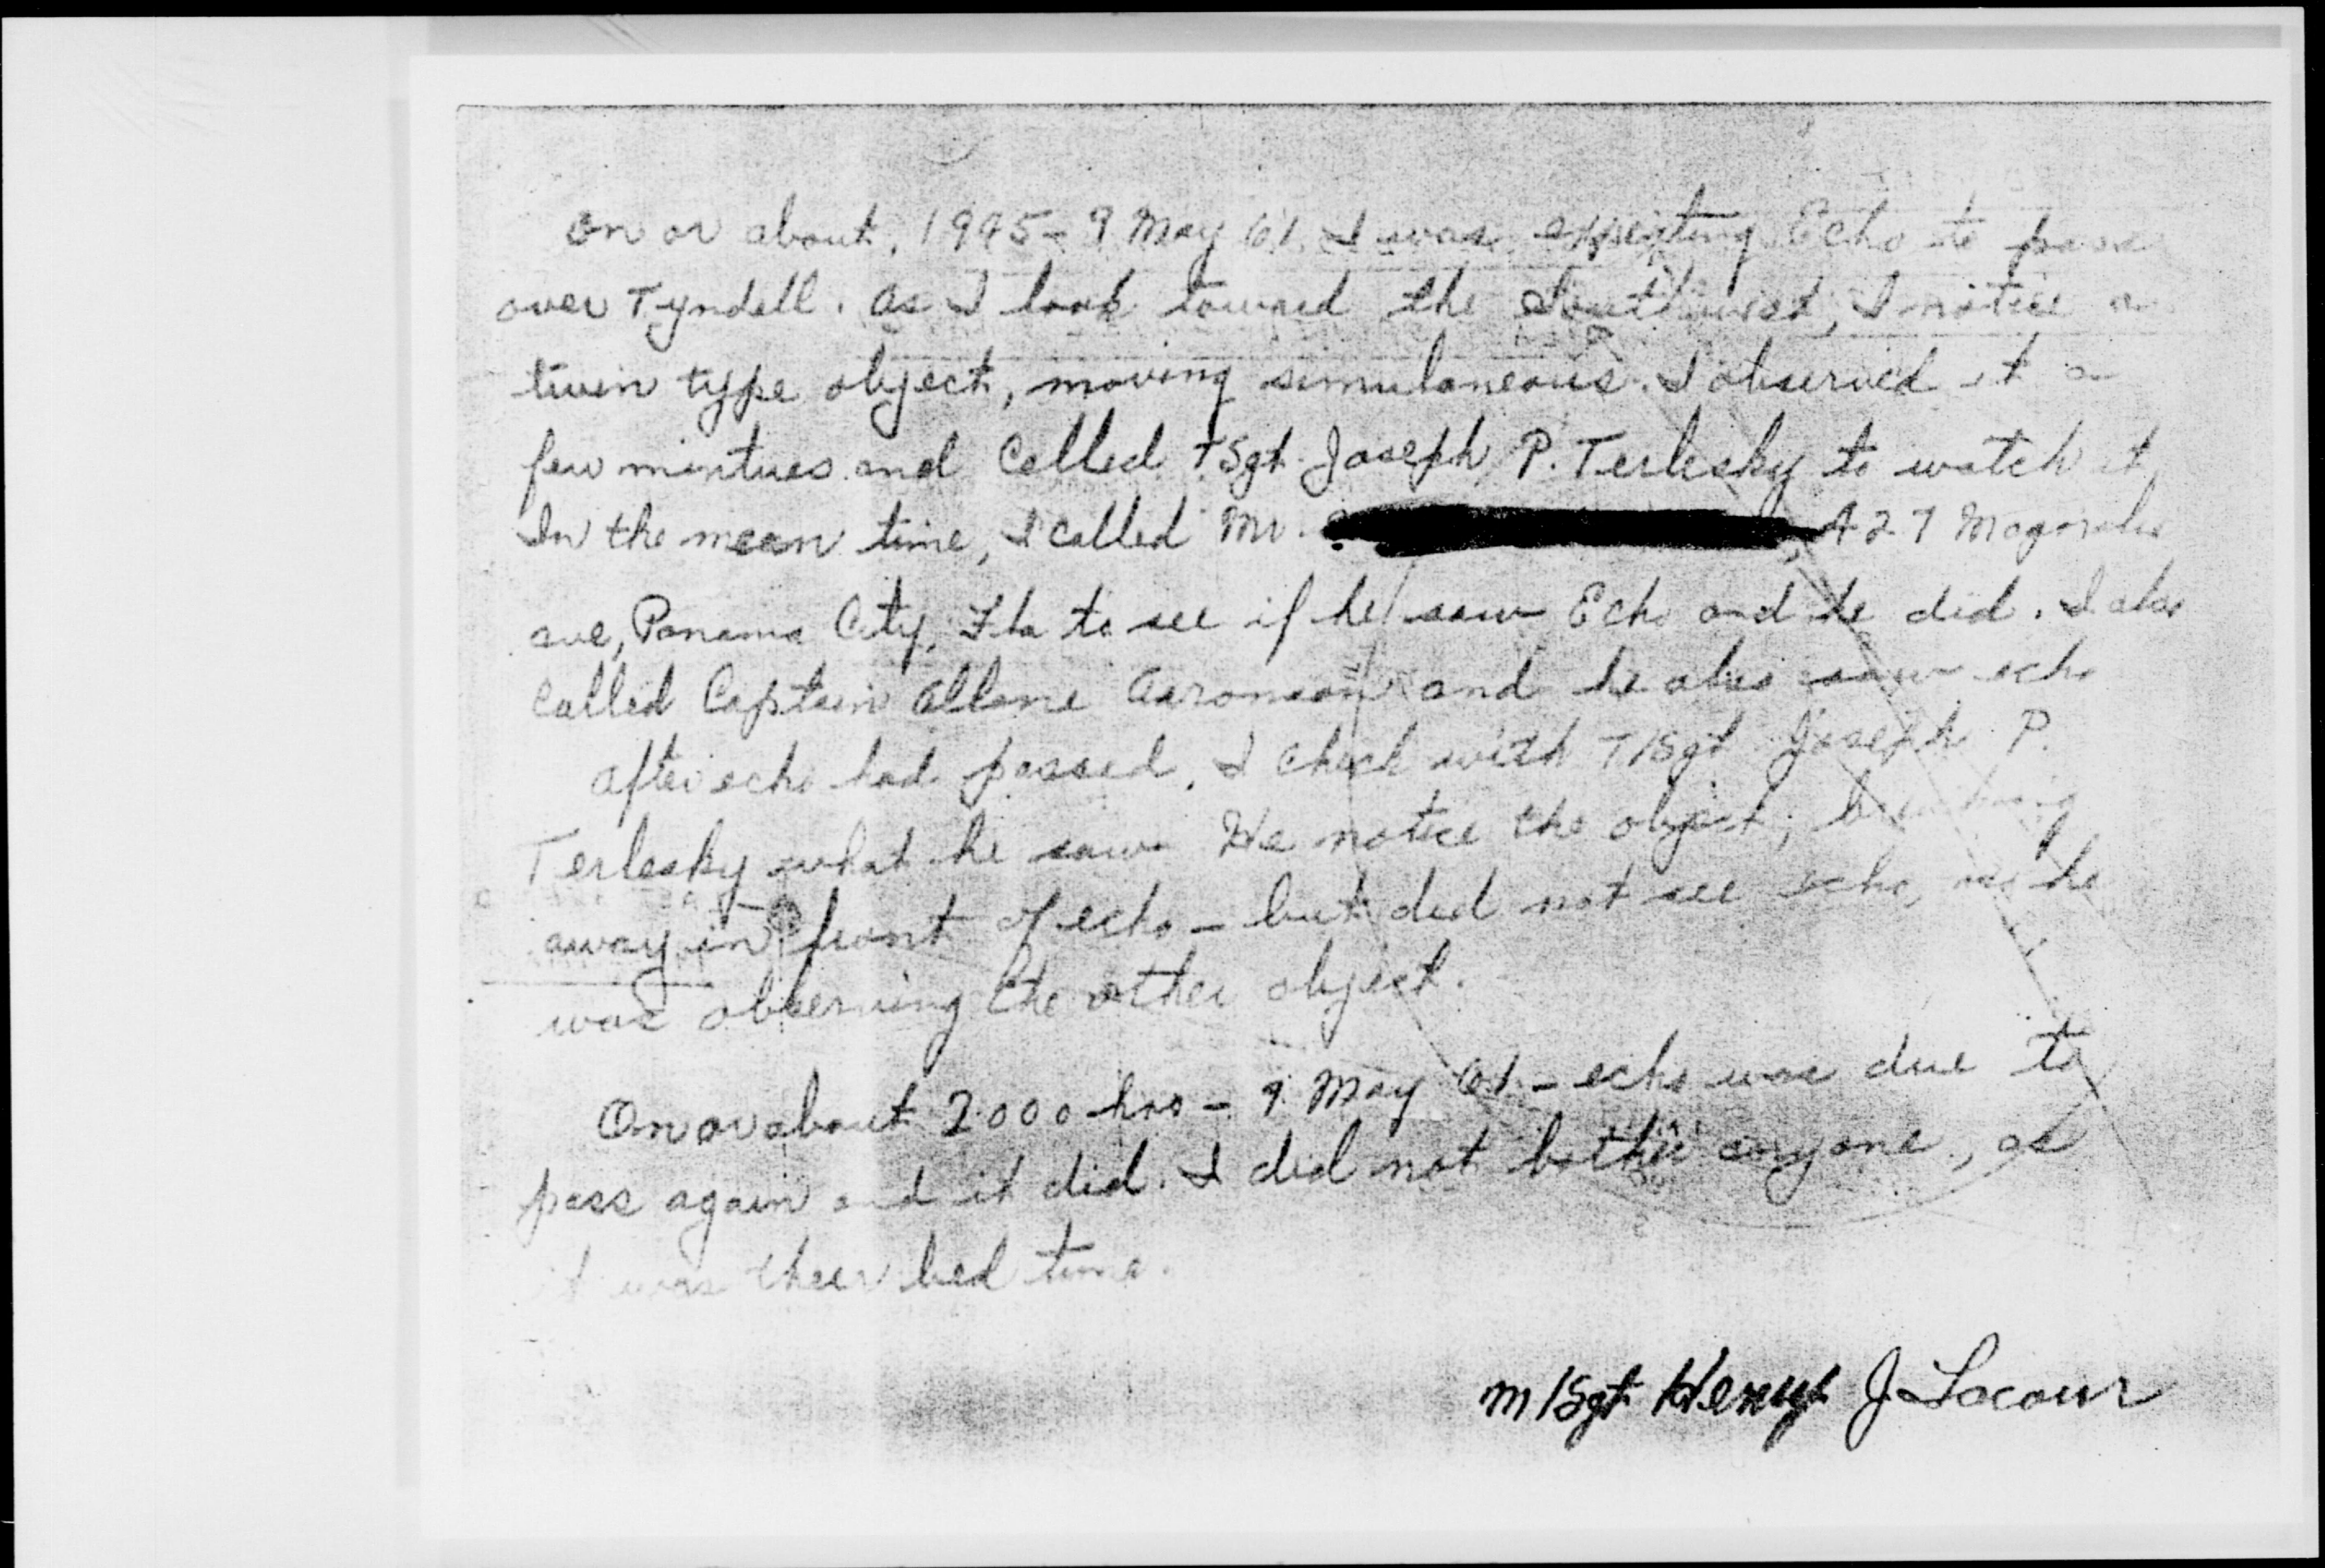 On or about, 1945 - 9 May 61. I was expecting Echo to pass
over Tyndall. As I look toward the Southwest, I notice a
twin type object, moving simulaneous. I observed it a
few mintues and called T/Sgt. Joseph P. Terlesky to watch it
In the mean time, I called Mr. 427 Magnolia
ave, Panama City, Fla to see if he saw Echo and he did. I also
called Captain Allane Aaronson and he also saw echo
After echo had passed, I check with T/Sgt Joseph P.
Terlesky what he saw. He notice the object,
away in front of echo - but did not see echo, as he
was observing the other object.
On or about 2000 hrs - 9 May 61 - echo was due to
pass again and it did. I did not bother anyone, as
it was their bed time.
M/Sgt Henry J Lacour